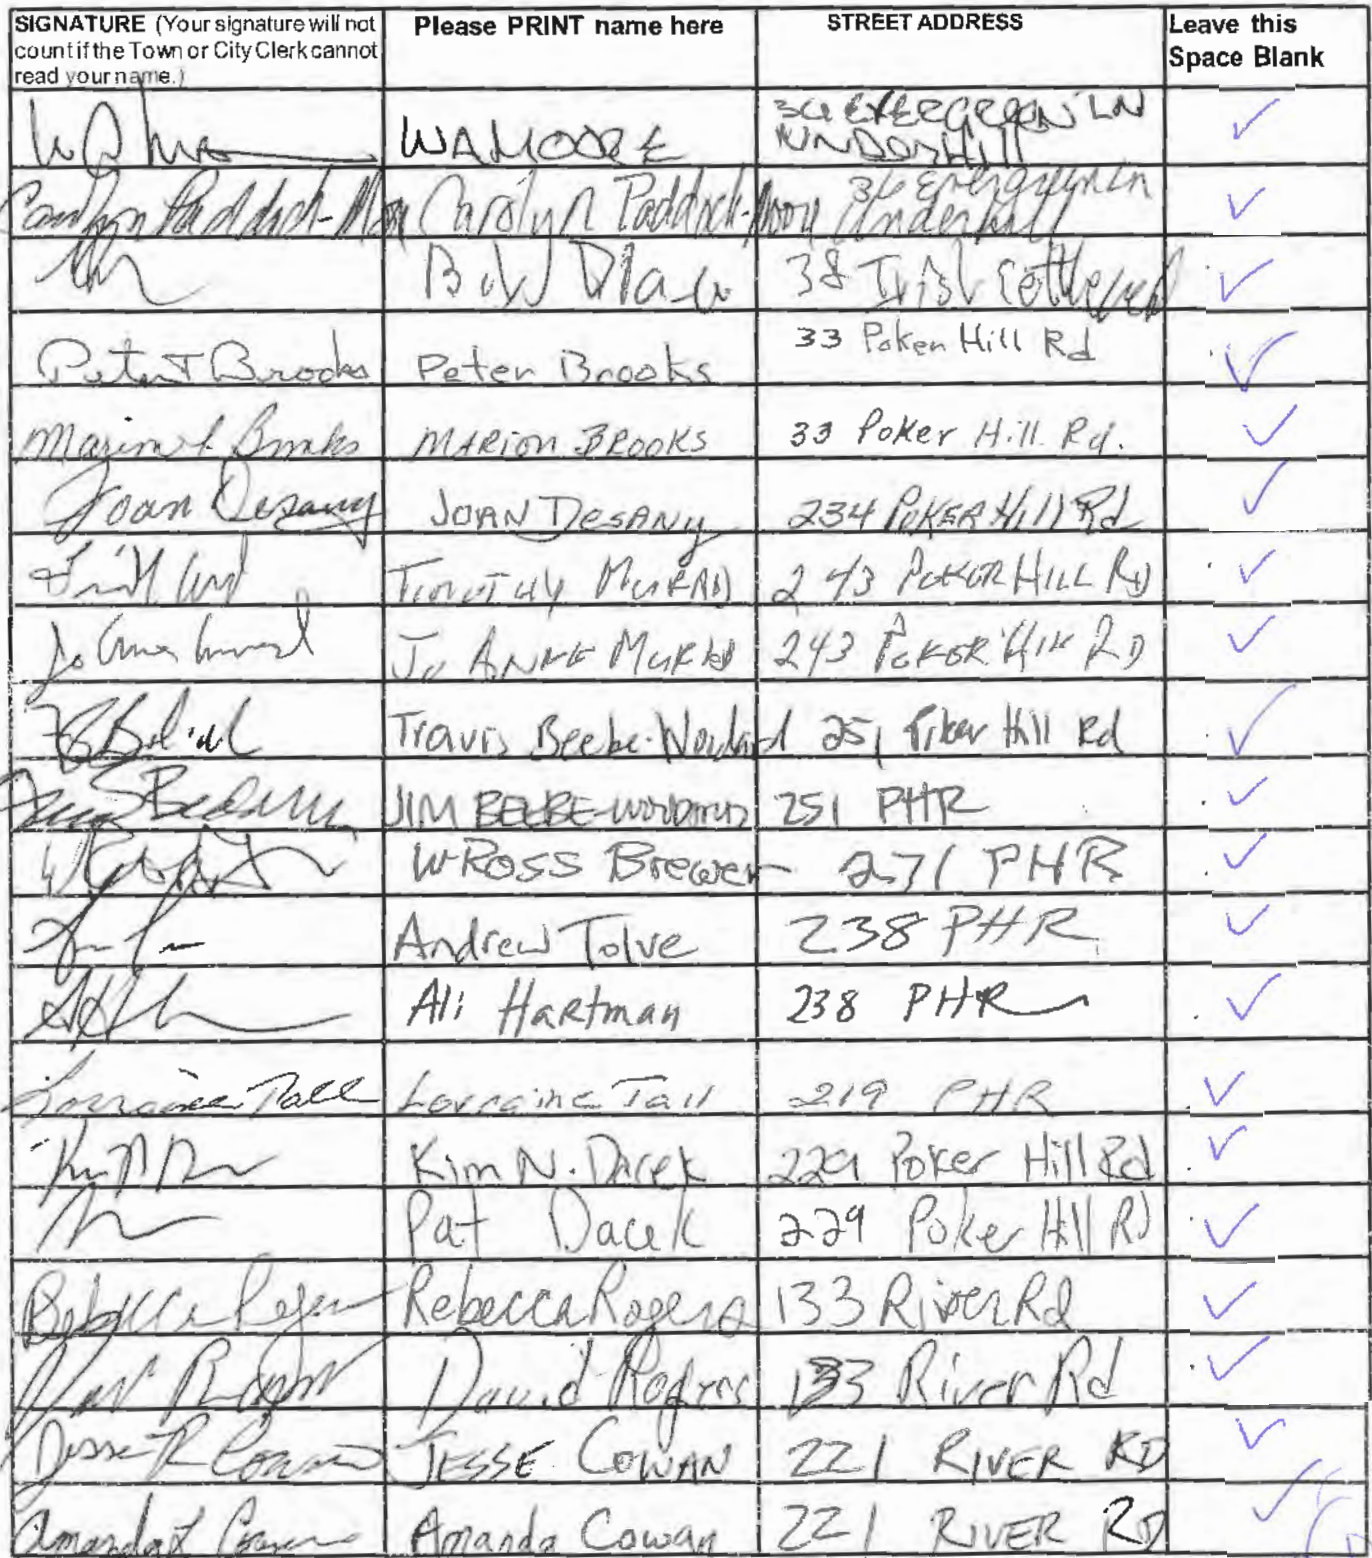 SIGNATURE (Your signature will not Please PRINT name here STREET ADDRESS Leave this
count if the Town or City Clerk cannot Space Blank
read your name.)
WA MOORE 36 EVERGREEN LN
UNDERHILL
Carolyn Paddock-Moore Carolyn Paddock-Moore 36 Evergreen Ln
Underhill
38 Irish Settlement
Peter T Brooks Peter Brooks 33 Poker Hill Rd
Marion Brooks MARION BROOKS 33 Poker Hill Rd.
Joan Desany JOAN DESANY 234 POKER Hill Rd
TIMOTHY MURAD 243 POKER HILL RD
Jo Anne Murad Jo ANNE MURAD 243 POKER HILL RD
Travis Beebe-Woodard 251 Poker Hill Rd
JIM BEEBE-WOODARD 251 PHR
W ROSS Brewer 271 PHR
Andrew Tolve 238 PHR
Ali Hartman 238 PHR
Lorraine Tall Lorraine Tall 219 PHR
Kim N. Dacek 229 Poker Hill Rd
Pat Dacek 229 Poker Hill Rd
Rebecca Rogers Rebecca Rogers 133 River Rd
David Rogers 133 River Rd
Jesse R Cowan JESSE COWAN 221 RIVER RD
Amanda L Cowan Amanda Cowan 221 RIVER RD